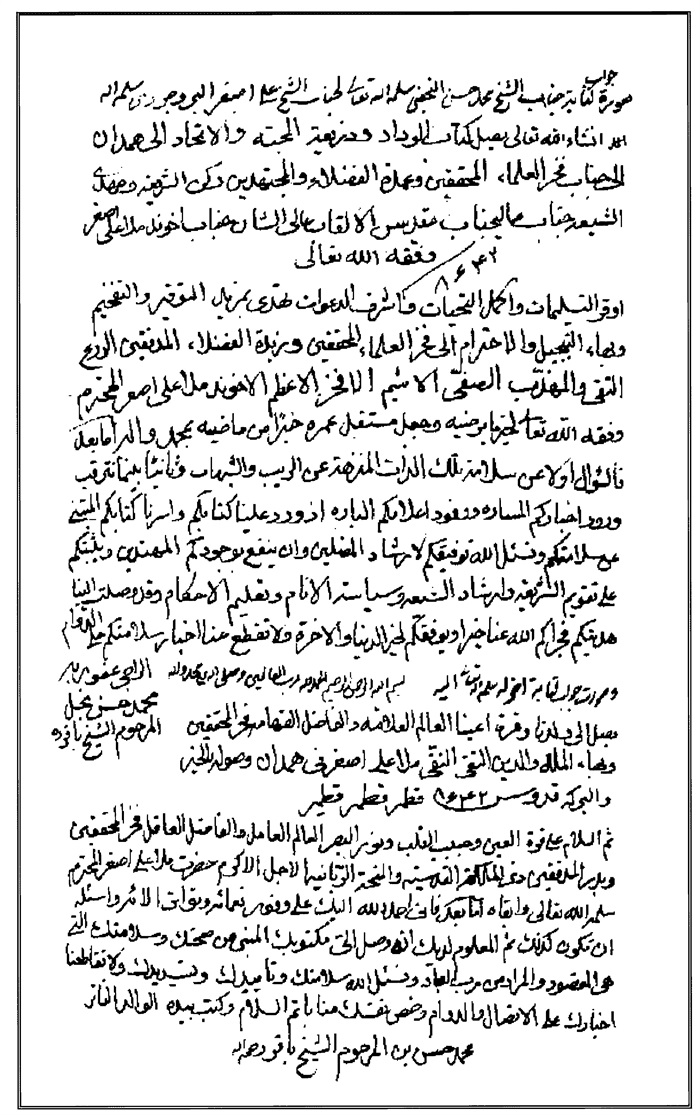 جواب
صورة كتابة جناب الشيخ محمد حسن النجفي سلمه الله تعالى لجناب الشيخ علي اصغر البروجردي سلمه الله
انشاء الله تعالى يصل كتاب الوداد وذريعة المحبة والاتحاد الى همدان
الى جناب فخر العلماء المحققين وعمدة الفضلاء والمجتهدين ركن الشريعة
الشيعة جناب عاليجناب مقدس الالقاب عالى الشان جناب اخوند ملا على اصغر
وفقه الله تعالى
٨٦٤٢
اوفر التسليمات واكمل التحيات واشرف الدعوات تهدى بمزيد التوقير والتفخيم
وبهاء التبجيل والاحترام الى فخر العلماء المحققين وزبدة الفضلاء المدققين الورع
التقي والمهذب الصفي الاشيم الافخر الاعظم الاخوند ملا على اصغر المحترم
وفقه الله تعالى لخير ما يرضيه وجعل مستقبل عمره خيرا من ماضيه بمحمد واله اما بعد
فالسؤال اولا عن سلامة تلك الذات المنزهة عن الريب والشبهات وثانيا بينما نترقب
ورود اخباركم الساره ووفود اعلامكم الداره اذ ورد علينا كتابكم واسرنا كتابكم المنبئ
عن سلامتكم ونسئل الله توفيقكم لارشاد المضلين وان ينفع بوجودكم المهتدين ويثبتكم
على تقويم الشريعة وارشاد الشيعة وسياسة الانام وتعليم الاحكام وقد وصلت الينا
هديتكم فجزاكم الله عنا خيرا ويوفقكم لخير الدنيا والاخرة ولا تقطع عنا اخبار سلامتكم على الدوام
وصورت جواب كتابة اخرى له سلمه الله تعالى اليه بسم الله الرحمن الرحيم الحمد لله رب العالمين وصلى الله على محمد واله
الراجي عفو ربه
محمد حسن نجل
المرحوم الشيخ باقر ره
يصل الى يد ولدنا وقرة اعيننا العالم العلامة والفاضل الفهامة فخر المحققين
وبهاء الملة والدين التقي النقي ملا على اصغر في همدان وصوله بالخير
والبركة قدوس ٨٦٤٢ قطمر قطمير
ثم السلام على قرة العين وحبيب القلب ونور البصر العالم العامل والفاضل العاقل فخر المحققين
وبدر المدققين ذي الملكة القدسية والمنحة الربانية الاجل الاكرم حضرت ملا على اصغر المحترم
سلمه الله تعالى وابقاه اما بعد فاني احمد الله اليك على وفور نعمائه وتواتر الائه واسئله
ان تكون كذلك ثم المعلوم لديك انه وصل الي مكتوبك المنبئ عن صحتك وسلامتك التي
هي المقصود والمراد من رب العباد ونسئل الله سلامتك وتاييدك وتسديدك ولا تقاطعنا
اخبارك على الاتصال والدوام وخص نفسك منا باتم السلام وكتب بيده الوالد
محمد حسن بن المرحوم الشيخ باقر رحمه الله